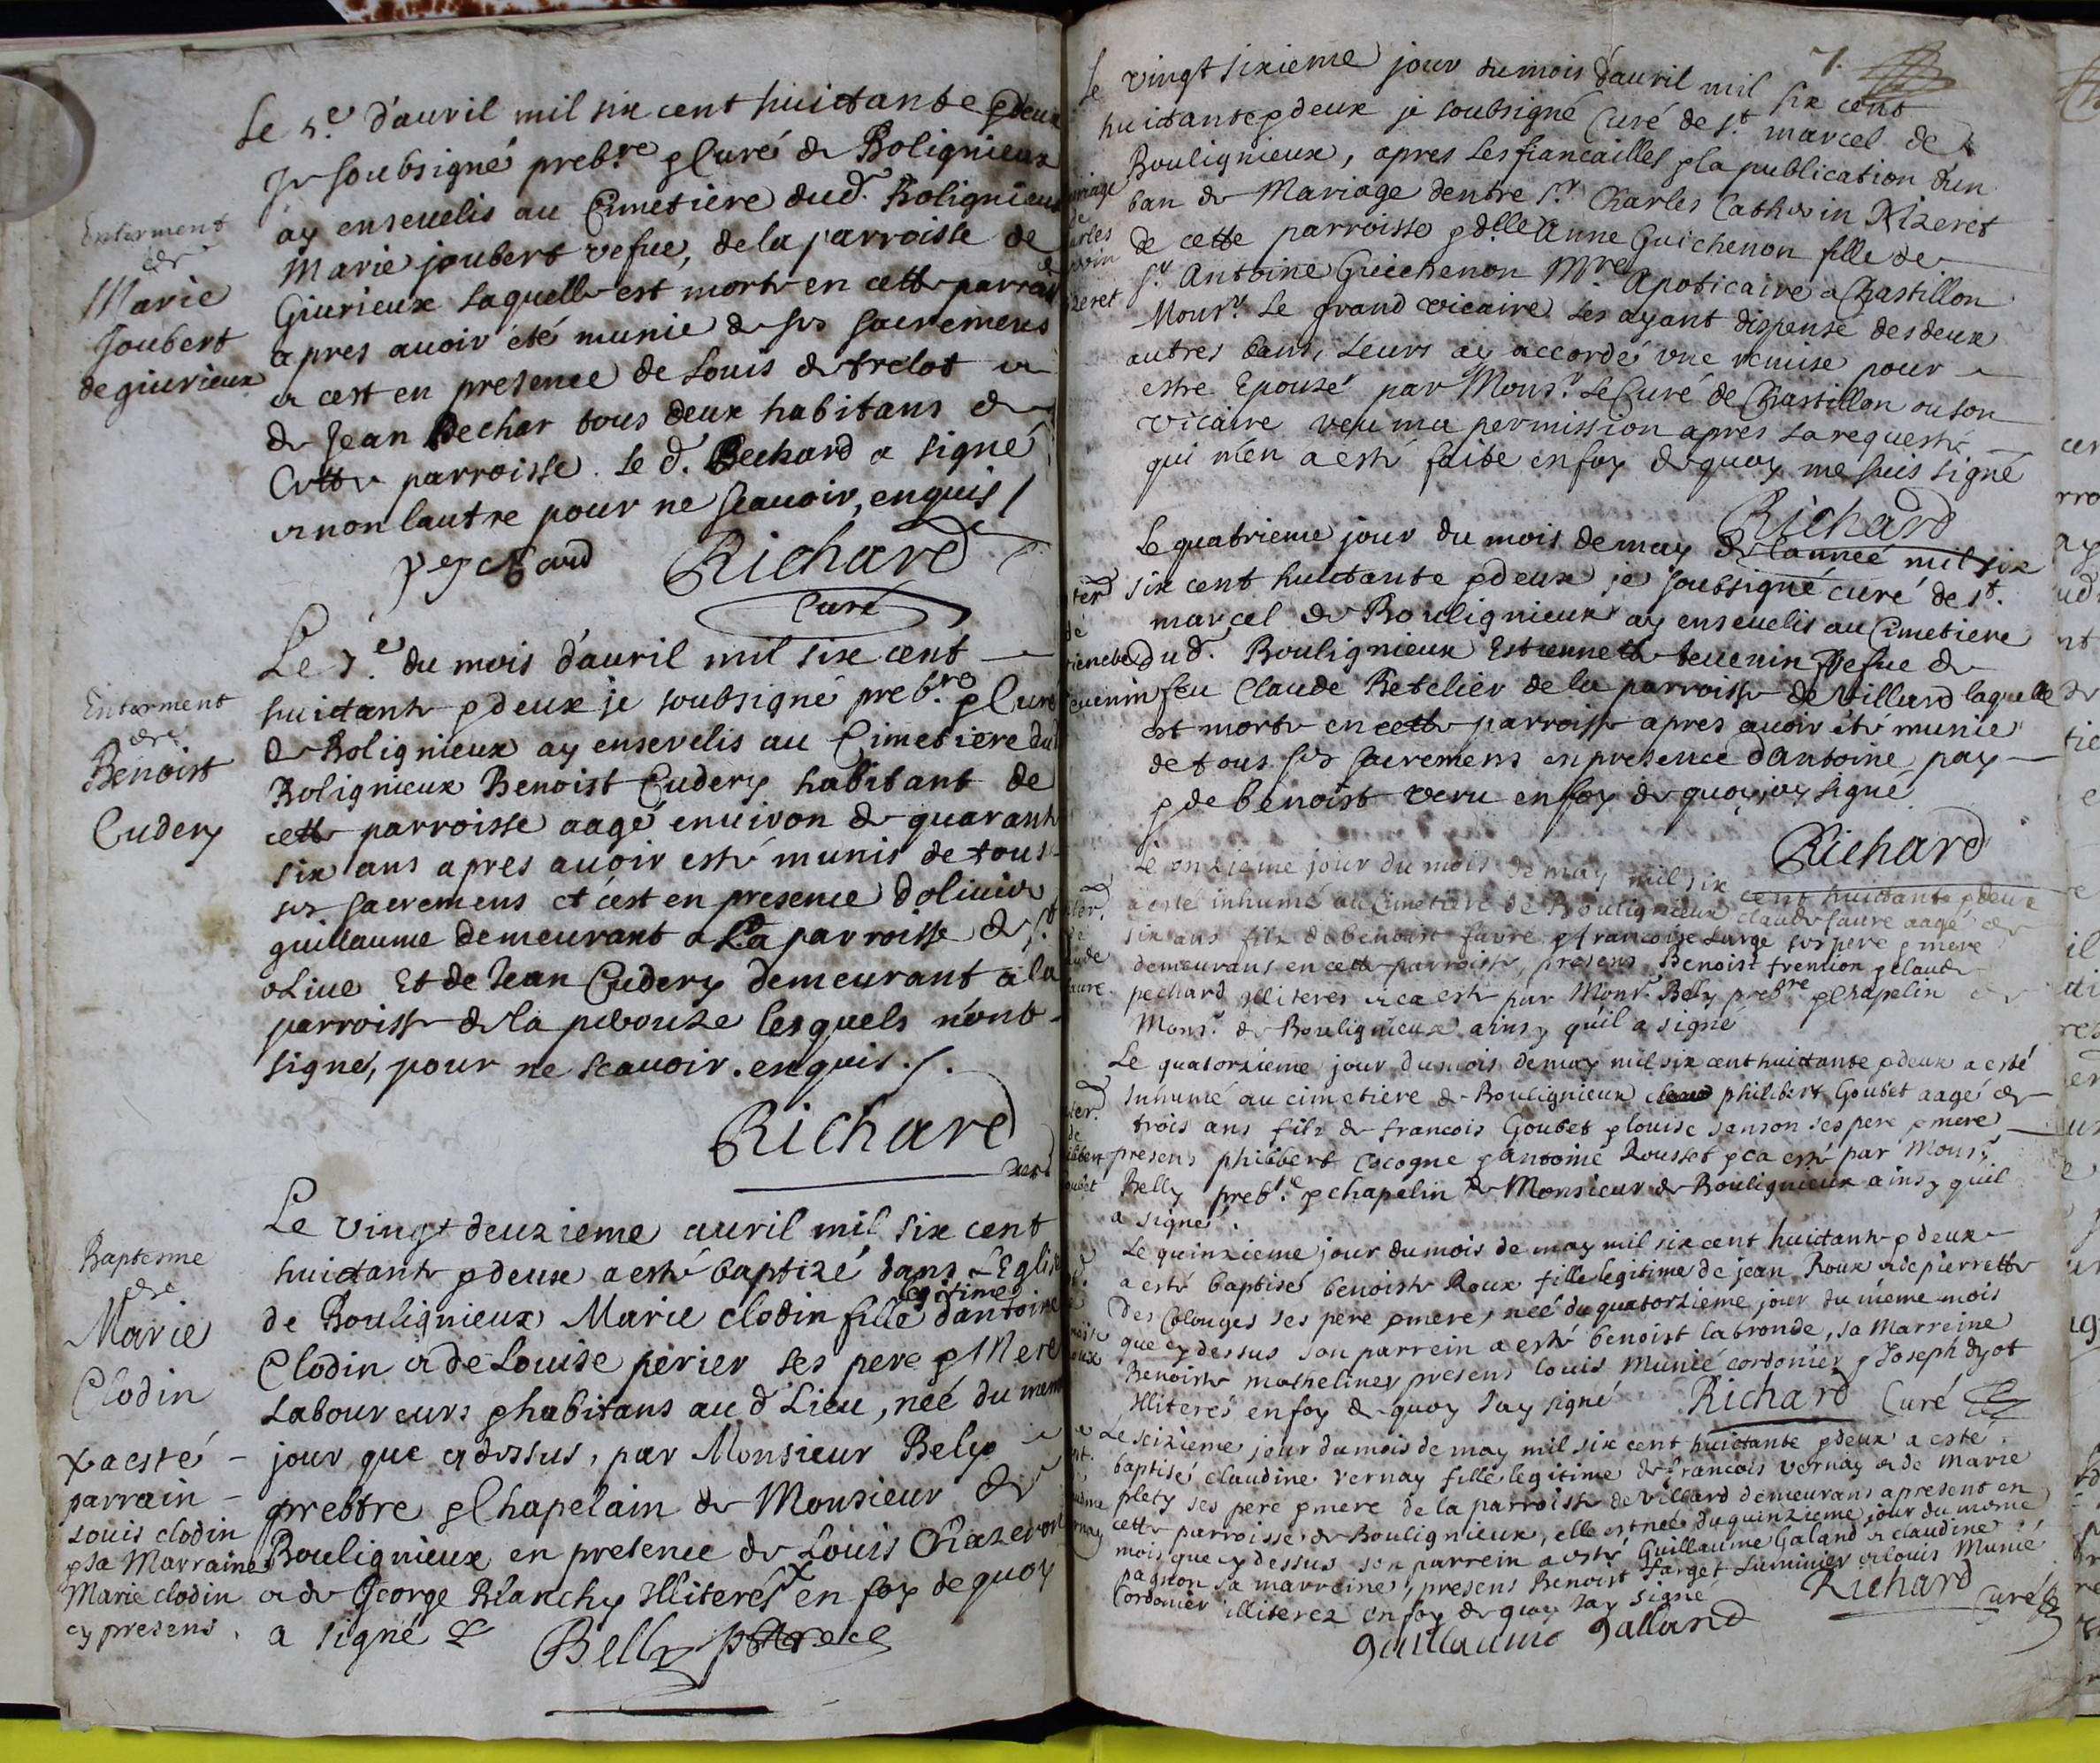 Enterment
de
Marie
Joubert
de giurieux
Le 5.e d'auril mil six cent huictante & deux
Je soubsigné prebre & Curé de Bolignieux
ay enseuelis au Cimetiere dud. Bolignieux
Marie joubert vefue, de la parroisse de
Giurieux laquelle est morte en cette parroi
apres auoir été munie de ses sacremens
et cest en presence de Louis de trelot et
de Jean Pechar tous deux habitans de
Cette parroisse. Le d. Pechard a signé
et non lautre pour ne scauoir, enquis /
pechard Richard
Curé
Enterment
de
Benoist
Cudery
Le 7.e du mois d'auril mil six cent
huictante & deux je soubsigné prebre & Curé
de Bolignieux ay ensevelis au Cimetiere dud
Bolignieux Benoist Cudery habitant de
cette parroisse aagé enuiron de quarante
six ans apres auoir esté munis de tous
ses sacremens et cest en presence doliuie
guillaume demeurant a La parroisse de st
oLiue Et de Jean Cudery demeurant a la
parroisse de la peyrouze lesquels n'ont
signé, pour ne scauoir. enquis. /.
Richard
curé
Baptesme
de
Marie
Clodin
Le vingt deuzieme auril mil six cent
huictante & deux a esté baptizé dans L'Eglise
de Boulignieux Marie clodin fille legitime d'antoine
Clodin et de Louise perier ses pere & Mere
Laboureurs & habitans au d. Lieu, neé du meme
jour que cy dessus, par Monsieur Bely
prebtre & Chapelain de Monsieur de
Boulignieux en presence de Louis Chazeron
et de George Blanchy Illiterés x en foy de quoy
a signé Belly ptre
x a esté
parrain
Louis clodin
& sa Marraine
Marie clodin
cy presens.
7.
Le vingt sixieme jour du mois d'auril mil six cent
huictante & deux je soubsigné Curé de st. marcel de
Boulignieux, apres les fiancailles & la publication d'un
ban de Mariage dentre sr. Charles Catherin Nizeret
de cette parroisse & d.elle Anne Guichenon fille de
sr. Antoine Guichenon M.re Apoticaire a Chastillon
Monsr. Le grand vicaire les ayant dispensé des deux
autres bans, Leurs ay accordé vne remise pour
estre Epousé par Monsr. Le Curé de Chastillon ou son
Vicaire veu ma permission apres la requeste
qui m'en a esté faite en foy de quoy me suis signé
Richard
Le quatrieme jour du mois de may de l'anneé mil six
six cent huictante & deux je soubsigné curé de st.
marcel de Boulignieux ay enseuelis au Cimetiere
dud. Boulignieux Estiennette teuenin Vefue de
feu Claude Retelier de la parroisse de Villard laquelle
est morte en cette parroisse apres auoir été munie
de tous ses sacremens en presence d'antoine pay
& de benoist veru en foy de quoy j'ay signé
Richard
Le onzieme jour du mois de may mil six cent huictante & deux
a esté inhumé au Cimetiere de Boulignieux claude faure aagé de
six ans fils de benoist favre & francoise Large ses pere & mere
demeurans en cette parroisse, presens Benoist frention & claude
pechard Illiteres et ca esté par Monsr. Belly prebre & Chapelin de
Monsr. de Boulignieux ainsy qu'il a signé
Le quatorzieme jour du mois de may mil six cent huictante & deux a esté
Inhumé au cimetiere de Boulignieux philibert Goubet aagé de
trois ans fils de francois Goubet & louise sanson ses pere & mere
presens philibert Cocogne & antoine Rousset & ca esté par Monsr.
Belly prebre & chapelin de Monsieur de Boulignieux ainsy quil
a signé.
Le quinzieme jour du mois de may mil six cent huictante & deux
a esté baptisé benoiste Roux fille legitime de jean Roux et de pierrette
Des Colonges ses pere & mere, neé du quatorzieme jour du méme mois
que cy dessus son parrein a esté benoist labronde, sa Marreine
Benoiste matheliney presens louis Munié cordonier & Joseph dyot
Illiterés en foy de quoy J'ay signé Richard Curé
Le seizieme jour du mois de may mil six cent huictante & deux a esté
baptisé claudine vernay fille legitime de francois vernay et de Marie
plety ses pere & mere de la parroisse de Villard demeurans a present en
cette parroisse de Boulignieux, elle est neé du quinzieme jour du meme
mois que cy dessus son parrein a esté Guillaume Galand et claudine
pagnon sa marreine, presens Benoist farget Luminier et louis Munié
Cordonier illiterez en foy de quoy J'ay signé Richard
Curé
guillaume galland